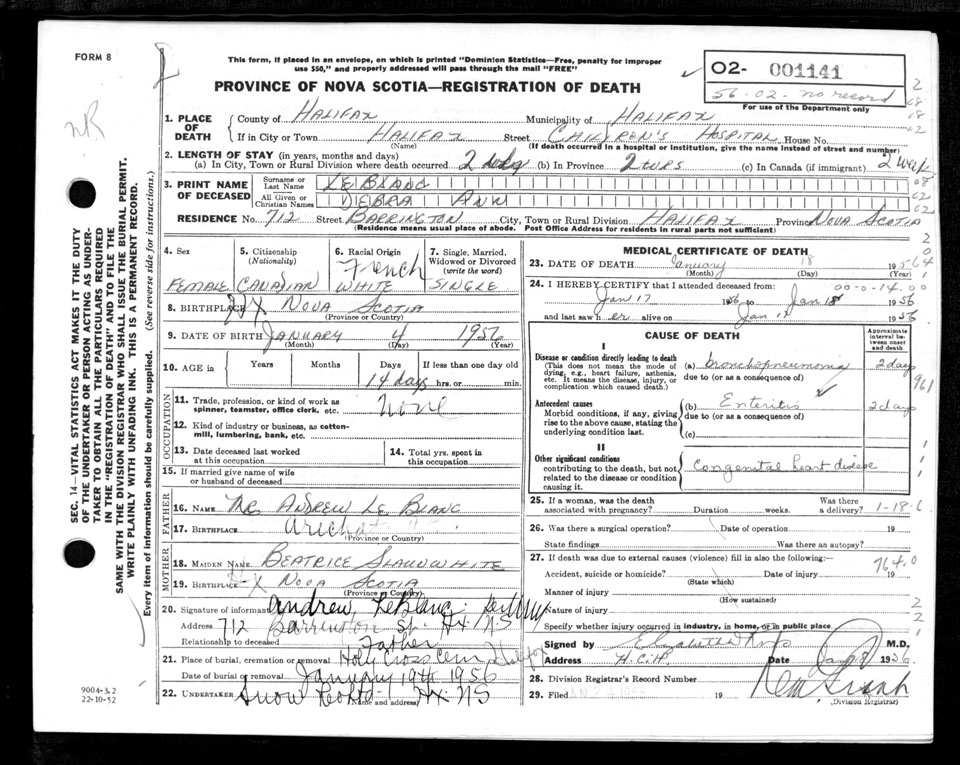 FORM 8
This form, if placed in an envelope, on which is printed "Dominion Statistics—Free, penalty for improper
use $50," and properly addressed will pass through the mail "FREE"
PROVINCE OF NOVA SCOTIA—REGISTRATION OF DEATH
O2- 001141
56-02- no record
For use of the Department only
NR
SEC. 14—VITAL STATISTICS ACT MAKES IT THE DUTY
OF THE UNDERTAKER OR PERSON ACTING AS UNDER-
TAKER TO OBTAIN ALL THE PARTICULARS REQUIRED
IN THE "REGISTRATION OF DEATH" AND TO FILE THE
SAME WITH THE DIVISION REGISTRAR WHO SHALL ISSUE THE BURIAL PERMIT.
WRITE PLAINLY WITH UNFADING INK. THIS IS A PERMANENT RECORD.
Every item of information should be carefully supplied. (See reverse side for instructions.)
1. PLACE OF DEATH
County of HALIFAX Municipality of HALIFAX
If in City or Town HALIFAX Street CHILDREN'S HOSPITAL House No.
(Name) (If death occurred in a hospital or institution, give the name instead of street and number)
2. LENGTH OF STAY (in years, months and days)
(a) In City, Town or Rural Division where death occurred 2 wks (b) In Province 2 wks (c) In Canada (if immigrant) 2 week
3. PRINT NAME OF DECEASED
Surname or Last Name LE BLANC
All Given or Christian Names DEBRA ANN
RESIDENCE No. 712 Street BARRINGTON City, Town or Rural Division HALIFAX Province NOVA SCOTIA
(Residence means usual place of abode. Post Office Address for residents in rural parts not sufficient)
4. Sex FEMALE
5. Citizenship (Nationality) CANADIAN
6. Racial Origin French WHITE
7. Single, Married, Widowed or Divorced (write the word) SINGLE
8. BIRTHPLACE HX NOVA SCOTIA
(Province or Country)
9. DATE OF BIRTH JANUARY 4 1956
(Month) (Day) (Year)
10. AGE in Years Months Days If less than one day old
14 days hrs. or min.
OCCUPATION
11. Trade, profession, or kind of work as
spinner, teamster, office clerk, etc. None
12. Kind of industry or business, as cotton-
mill, lumbering, bank, etc.
13. Date deceased last worked
at this occupation
14. Total yrs. spent in
this occupation
15. If married give name of wife
or husband of deceased
FATHER
16. Name MR. ANDREW LE BLANC
17. Birthplace Arichat
(Province or Country)
MOTHER
18. Maiden Name BEATRICE SLAUNWHITE
19. Birthplace NOVA SCOTIA
(Province or Country)
20. Signature of informant Andrew LeBlanc
Address 712 Barrington St. Hx NS
Relationship to deceased Father
21. Place of burial, cremation or removal Holy Cross Cem Halifax
Date of burial or removal January 19th 1956
22. UNDERTAKER Snow Hx NS
(Name and address)
9004-3.2
22-10-52
MEDICAL CERTIFICATE OF DEATH
23. DATE OF DEATH January 18 1956
(Month) (Day) (Year)
24. I HEREBY CERTIFY that I attended deceased from: 00-0-14.00
Jan 17 1956 to Jan 18 1956
and last saw h er alive on Jan 17 1956
CAUSE OF DEATH
Approximate interval between onset and death
I
Disease or condition directly leading to death
(This does not mean the mode of
dying, e.g., heart failure, asthenia,
etc. It means the disease, injury, or
complication which caused death.)
(a) bronchopneumonia 2 days
due to (or as a consequence of)
961
Antecedent causes
Morbid conditions, if any, giving
rise to the above cause, stating the
underlying condition last.
(b) Enteritis 2 days
due to (or as a consequence of)
(c)
II
Other significant conditions
contributing to the death, but not
related to the disease or condition
causing it.
Congenital heart disease
25. If a woman, was the death
associated with pregnancy? Duration weeks. Was there
a delivery? 1-18-6
26. Was there a surgical operation? Date of operation 19
State findings Was there an autopsy?
27. If death was due to external causes (violence) fill in also the following: 764.0
Accident, suicide or homicide? Date of injury 19
(State which)
Manner of injury
(How sustained)
Nature of injury
Specify whether injury occurred in industry, in home, or in public place
Signed by Elizabeth M.D.
Address H.C.H. Date Jan 18 1956
28. Division Registrar's Record Number
29. Filed JAN 24 1956 19
(Division Registrar)